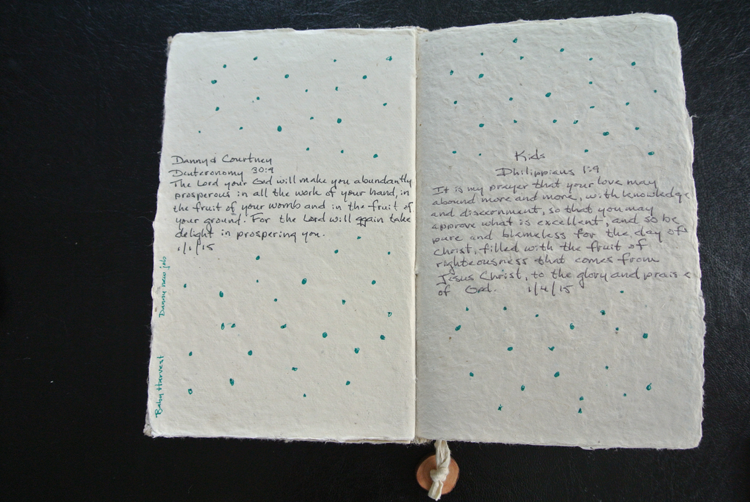 Danny & Courtney
Deuteronomy 30:9
The Lord your God will make you abundantly
prosperous in all the work of your hand, in
the fruit of your womb and in the fruit of
your ground. For the Lord will again take
delight in prospering you.
1/1/15
Danny new job
Baby Harvest
Kids
Philippians 1:9
It is my prayer that your love may
abound more and more, with knowledge
and discernment, so that you may
approve what is excellent, and so be
pure and blameless for the day of
Christ, filled with the fruit of
righteousness that comes from
Jesus Christ, to the glory and praise
of God. 1/4/15